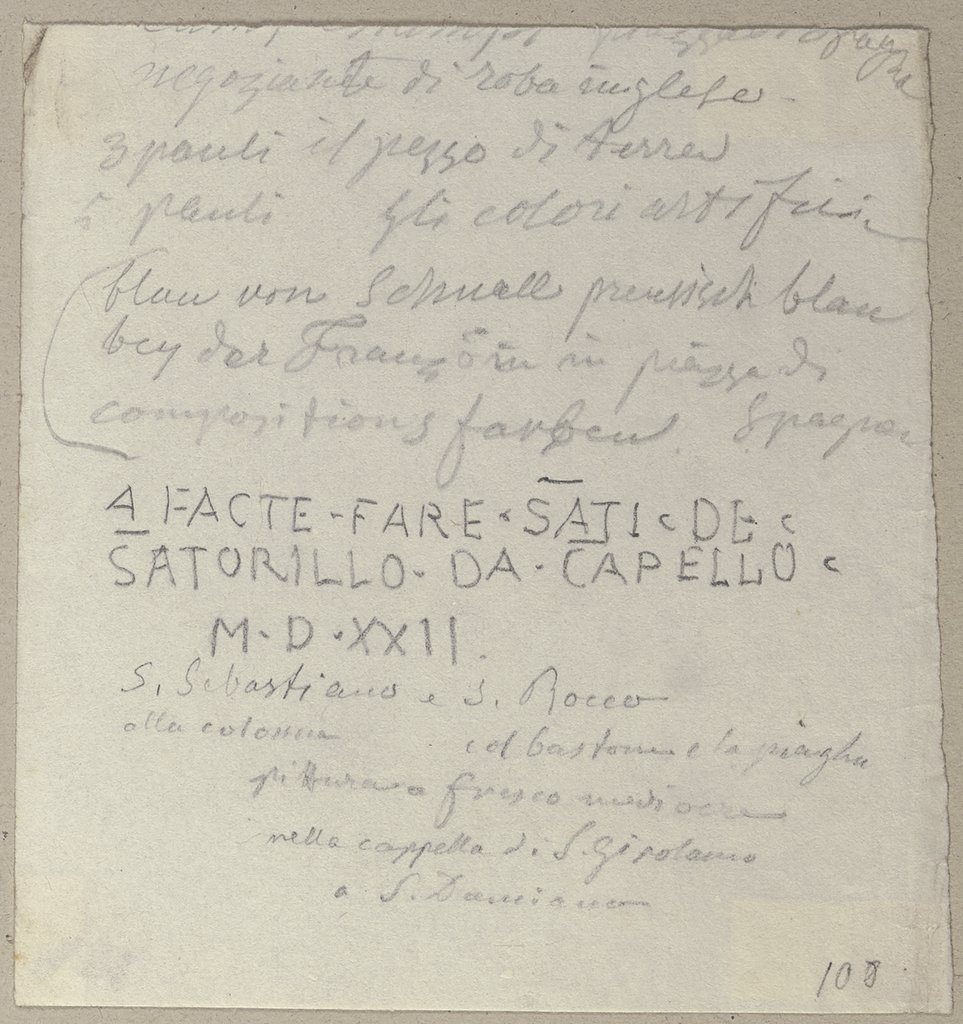 negoziante di roba inglese
3 pauli il pezzo di terra
5 pauli Gli colori artifici
blau von Schnell preussisch blau
bey der Französin in piazza di
compositions farben. Spagna
A FACTE - FARE · SATI · DE ·
SATORILLO · DA · CAPELLO ·
M · D · XXII.
S. Sebastiano e S. Rocco
alla colonna col bastone e la piagha
pittura a fresco mediocre
nella cappella di S. Girolamo
a S. Damiano
108